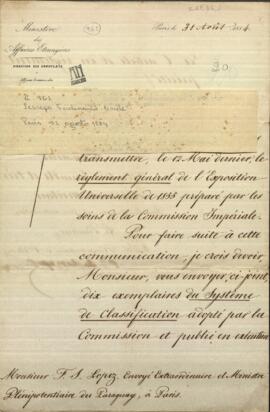 Ministère
des
Affaires Etrangères
DIRECTION DES CONSULATS
Paris le 31 Août 1854.
Paris 31 agosto 1854
transmettre, le 12 Mai dernier, le
règlement général de l'Exposition
Universelle de 1855 préparé par les
soins de la Commission Impériale.
Pour faire suite à cette
communication, je crois devoir,
Monsieur, vous envoyer, ci-joint,
dix exemplaires du Système
de Classification adopté par la
Commission et publié en exécution
Monsieur F. S. Lopez, Envoyé Extraordinaire et Ministre
Plénipotentiaire du Paraguay, à Paris.